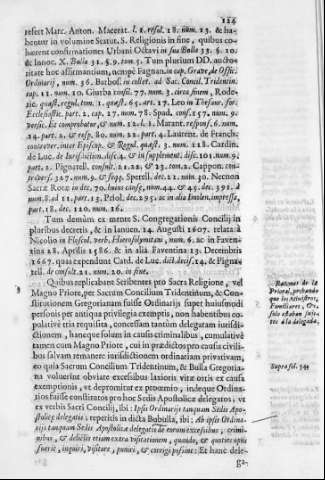 124
refert Marc. Anton. Macerat. l. 1. resol. 18. num. 13. & ha-
bentur in volumine Statut. S. Religionis in fine, quibus co-
hærent confirmationes Urbani Octavi in sua Bulla 33. §. 10.
& Innoc. X. Bulla 31. §. 9. tom. 5. Tum plurium DD. autho-
ritate hoc affirmantium, nempè Fagnan. in cap. Grave, de Offic.
Ordinarij, num. 36. Barbos. in collect. ad Sac. Concil. Tridentin.
cap. 11. num. 10. Giurba consil. 77. num. 3. circa finem, Rode-
ric. quæst. regul. tom. 1. quæst. 65. art. 17. Leo in Thesaur. for.
Ecclesiastic. part. 2. cap. 27. num. 78. Spad. cons. 157. num. 9.
versic. Ex computatur, & num. 12. l. 1. Marant. respons. 6. num.
24. part. 2. & resp. 80. num. 22. part. 4. Laurent. de Franch.
controver. inter Episcop. & Regul. quæst. 3. num. 128. Cardin.
de Luc. de Iurisdiction. disc. 4. & in supplement. disc. 101. num. 9.
part. 2. Pignatell. consult. 21. 22. & 23. tom. 2. Cappon. con-
troversi. 327. num. 9. & seqq. Sperell. dec. 21. num. 30. Necnon
Sacræ Rotæ in dec. 70. huius causæ, num. 44. & 45. dec. 391. à
num. 8. ad 11. part. 13. Priol. dec. 295. ac in alia Imolen. impressa,
part. 18. dec. 120. num. 16.
Tum demùm ex mente S. Congregationis Concilij in
pluribus decretis, & in Ianuen. 14. Augusti 1607. relata à
Nicolio in Floscul. verb. Hierosolymitani, num. 6. ac in Faven-
tina 28. Aprilis 1586. & in aliâ Faventina 13. Decembris
1667. quas expendunt Card. de Luc. dict. decis. 14. & Pigna-
tell. de consult. 21. num. 20. in fine.
Quibus replicabant Scribentes pro Sacra Religione, vel
Magno Priore, per Sacrum Concilium Tridentinum, & Con-
stitutionem Gregorianam fuisse Ordinarijs super huiusmodi
personis per antiqua privilegia exemptis, non habentibus co-
pulativè tria requisita, concessam tantùm delegatam iurisdi-
ctionem, haneque solùm in causis criminalibus, cumulativè
tamen cum Magno Priore, cui in prædictis pro causis civili-
bus salvam remanere iurisdictionem ordinariam privativam,
eo quia Sacrum Concilium Tridentinum, & Bulla Gregoria-
na voluerint obviare excessibus laxioris vitæ ortis ex causa
exemptionis, ut depromitur ex proœmio, indeque Ordina-
rios fuisse constitutos pro hoc Sedis Apostolicæ delegatos; ut
ex verbis Sacri Concilij, ibi: Ipsis Ordinarijs tanquam Sedis Apo-
stolicæ delegatis; repetitis in dicta Bulla, ibi: Ab ipsis Ordina-
rijs tanquam Sedis Apostolicæ delegatis de eorum excessibus, crimi-
nibus, & delictis etiam extra visitationem, quando, & quoties opus
fuerit, inquiri, visitare, puniri, & corrigi possint: Et hanc dele-
ga-
Razones de la
Prioral, probando
que los Ministros,
Familiares, &c.
solo estaban suje-
tos à la delegada.
Supra fol. 34.